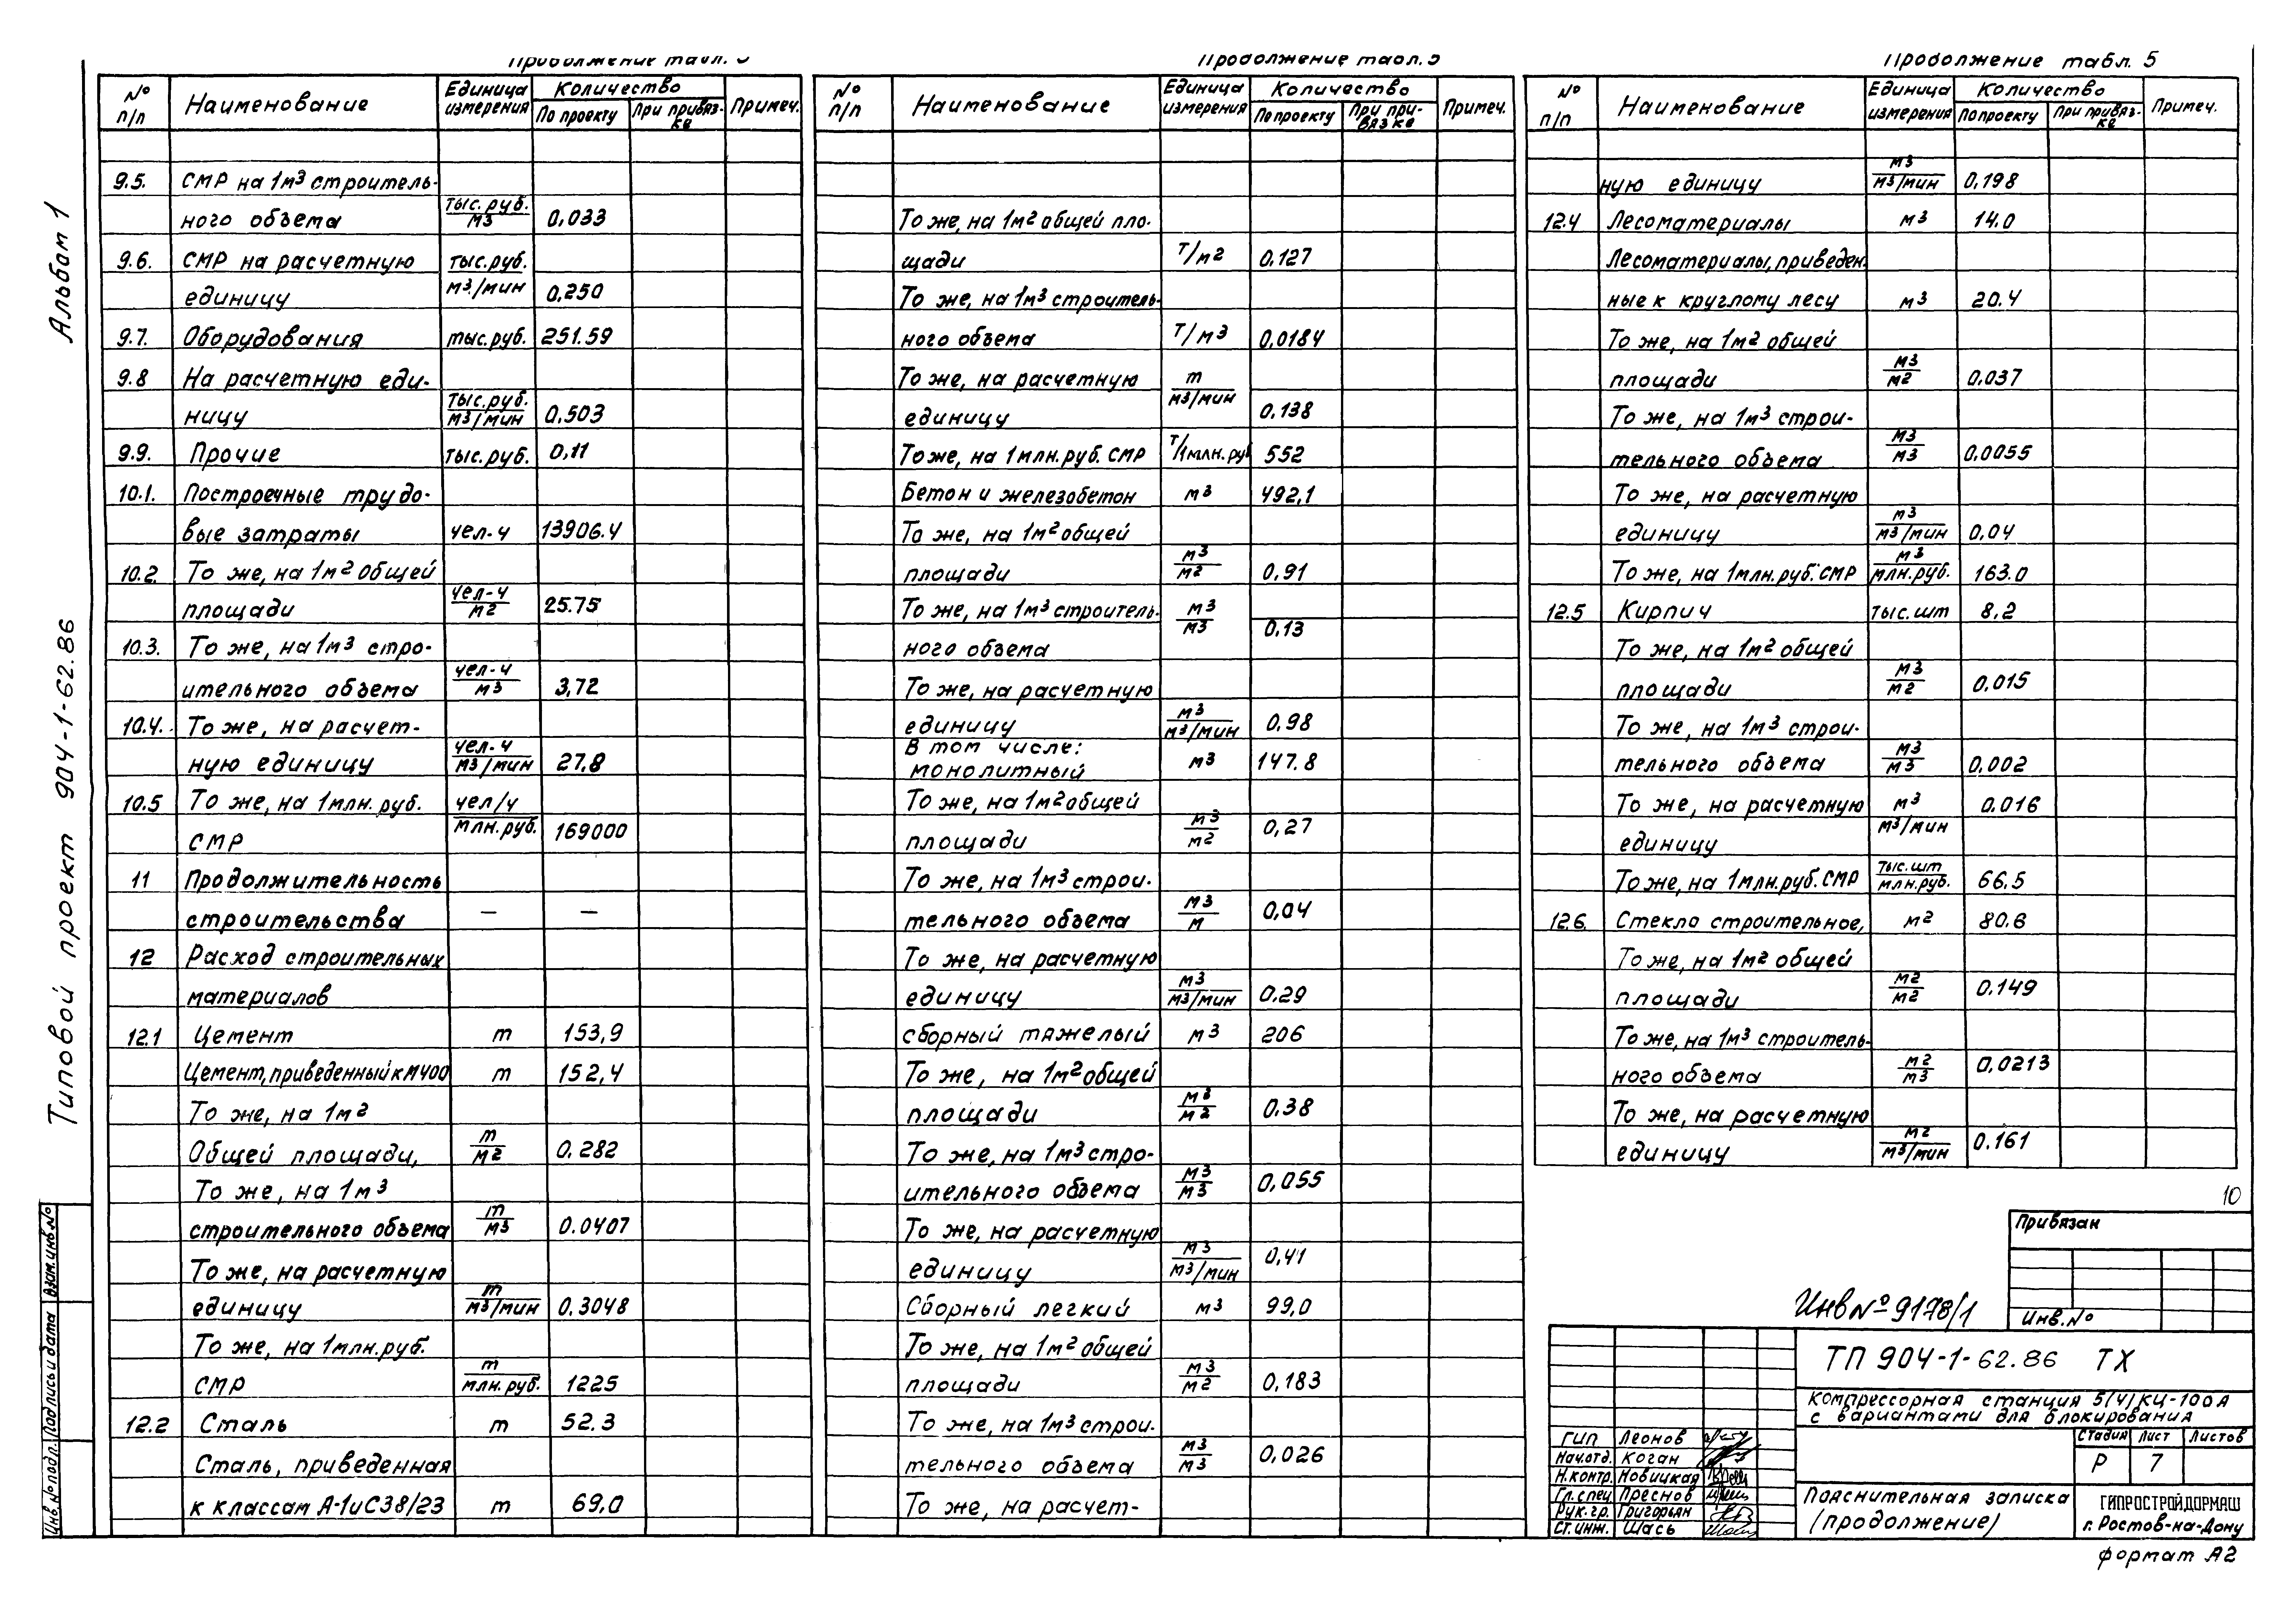 Альбом 1
Типовой проект 904-1-62.86
Взам.инв.№
Подпись и дата
Инв.№ подл.
Продолжение табл. 5
№ п/п | Наименование | Единица измерения | Количество | По проекту | При привяз-ке | Примеч.
9.5. СМР на 1м³ строитель-
ного объема тыс.руб./м3 0,033
9.6. СМР на расчетную тыс.руб.
единицу м³/мин 0,250
9.7. Оборудования тыс.руб. 251.59
9.8 На расчетную еди-
ницу тыс.руб./м3/мин 0,503
9.9. Прочие тыс.руб. 0,11
10.1. Построечные трудо-
вые затраты чел-ч 13906.4
10.2. То же, на 1м2 общей
площади чел-ч/м2 25.75
10.3. То же, на 1м3 стро-
ительного объема чел-ч/м3 3,72
10.4. То же, на расчет-
ную единицу чел-ч/м3/мин 27.8
10.5 То же, на 1млн. руб. чел/ч
СМР млн.руб. 169000
11 Продолжительность
строительства — —
12 Расход строительных
материалов
12.1 Цемент т 153,9
Цемент, приведенный к М400 т 152,4
То же, на 1м2
Общей площади, т/м2 0.282
То же, на 1м3
строительного объема т/м3 0.0407
То же, на расчетную
единицу т/м3/мин 0.3048
То же, на 1млн.руб.
СМР т/млн.руб. 1225
12.2 Сталь т 52.3
Сталь, приведенная
к классам А-1 и С38/23 т 69,0
Продолжение табл. 5
№ п/п | Наименование | Единица измерения | Количество | По проекту | При при-вязке | Примеч.
То же, на 1м2 общей пло-
щади т/м2 0.127
То же, на 1м3 строитель-
ного объема т/м3 0,0184
То же, на расчетную т
единицу м3/мин 0.138
То же, на 1млн.руб. СМР т/1млн.руб 552
Бетон и железобетон м3 492,1
То же, на 1м2 общей
площади м3/м2 0,91
То же, на 1м3 строитель- м3/м3 0,13
ного объема
То же, на расчетную
единицу м3/м3/мин 0.98
В том числе:
монолитный м3 147.8
То же, на 1м2 общей
площади м3/м2 0,27
То же, на 1м3 строи-
тельного объема м3/м 0,04
То же, на расчетную
единицу м3/м3/мин 0.29
сборный тяжелый м3 206
То же, на 1м2 общей
площади м3/м2 0.38
То же, на 1м3 стро-
ительного объема м3/м3 0,055
То же, на расчетную
единицу м3/м3/мин 0,41
Сборный легкий м3 99,0
То же, на 1м2 общей
площади м3/м2 0,183
То же, на 1м3 строи-
тельного объема м3/м3 0,026
То же, на расчет-
Продолжение табл. 5
№ п/п | Наименование | Единица измерения | Количество | По проекту | При привяз-ке | Примеч.
ную единицу м3/м3/мин 0,198
12.4 Лесоматериалы м3 14.0
Лесоматериалы, приведен-
ные к круглому лесу м3 20.4
То же, на 1м2 общей
площади м3/м2 0,037
То же, на 1м3 строи-
тельного объема м3/м3 0,0055
То же, на расчетную
единицу м3/м3/мин 0,04
То же, на 1млн.руб. СМР м3/млн.руб. 163.0
12.5 Кирпич тыс.шт 8,2
То же, на 1м2 общей
площади м3/м2 0,015
То же, на 1м3 строи-
тельного объема м3/м3 0,002
То же, на расчетную м3 0.016
единицу м3/мин
То же, на 1млн.руб. СМР тыс.шт/млн.руб. 66,5
12.6. Стекло строительное, м2 80.6
То же, на 1м2 общей
площади м2/м2 0.149
То же, на 1м3 строитель-
ного объема м2/м3 0,0213
То же, на расчетную
единицу м2/м3/мин 0.161
10
Привязан
Инв.№
Инв№9178/1
ТП 904-1-62.86 ТХ
Компрессорная станция 5(4)КЦ-100А
с вариантами для блокирования
Стадия Лист Листов
Р 7
ГИП Леонов
Нач.отд. Коган
Н.контр. Новицкая
Гл.спец Преснов
Рук.гр. Григорьян
Ст.инж. Шась
Пояснительная записка
(продолжение)
ГИПРОСТРОЙДОРМАШ
г. Ростов-на-Дону
формат А2